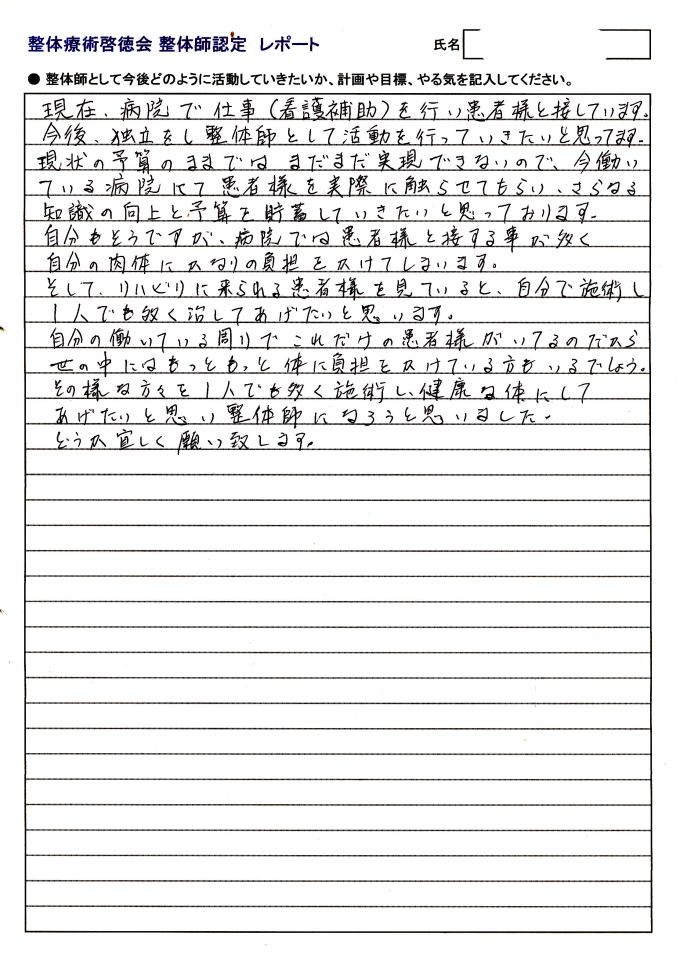 整体療術啓徳会 整体師認定 レポート
氏名
● 整体師として今後どのように活動していきたいか、計画や目標、やる気を記入してください。
現在、病院で仕事(看護補助)を行い患者様と接しています。
今後、独立をし整体師として活動を行っていきたいと思ってます。
現状の予算のままでは まだまだ実現できないので、今働い
ている病院にて患者様を実際に触らせてもらい、さらなる
知識の向上と予算を貯蓄していきたいと思っております。
自分もそうですが、病院では患者様と接する事が多く
自分の肉体にかなりの負担をかけてしまいます。
そして、リハビリに来られる患者様を見ていると、自分で施術し
1人でも多く治してあげたいと思います。
自分の働いている周りでこれだけの患者様がいてるのだから
世の中にはもっともっと体に負担をかけている方もいるでしょう。
その様な方々を1人でも多く施術し、健康な体にして
あげたいと思い整体師になろうと思いました。
どうか宜しく願い致します。